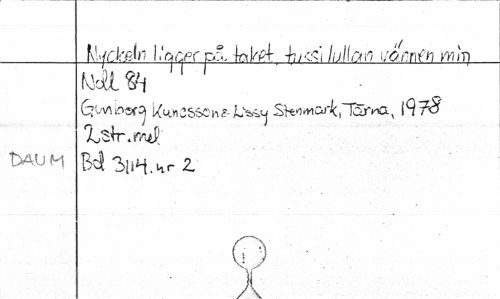 Nyckeln ligger på taket, tussilullan vännen min
Noll 84
Gunborg Kunossons Lissy Stenmark, Tärna, 1978
2str.mel
DAUM Bd 3114.nr 2